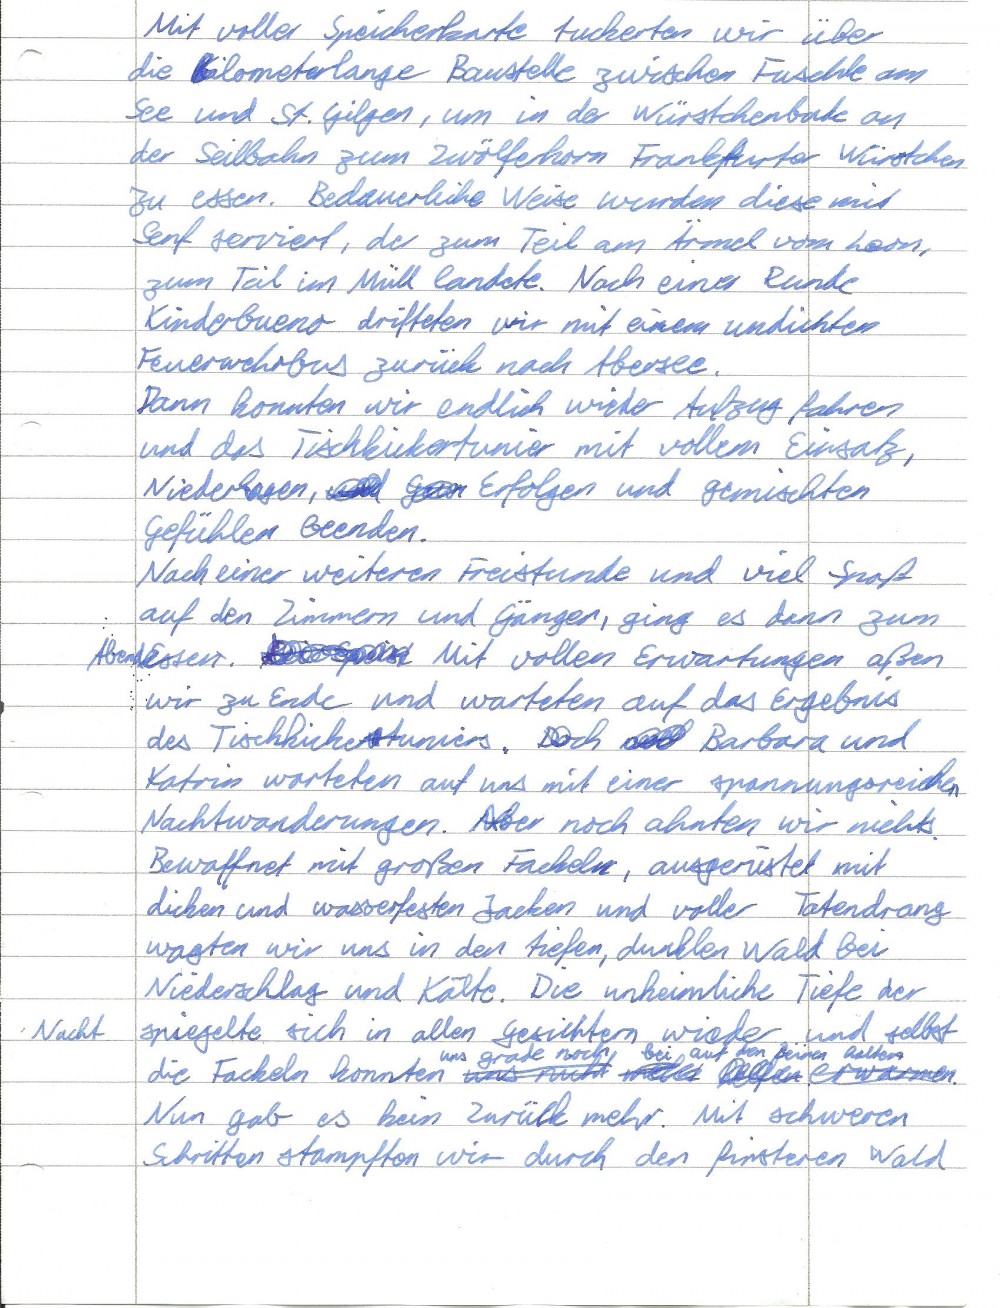 Mit voller Speicherkarte tuckerten wir über
die kilometerlange Baustelle zwischen Fuschle am
See und St. Gilgen, um in der Würstchenbude an
der Seilbahn zum Zwölferhorn Frankfurter Würstchen
zu essen. Bedauerliche Weise wurden diese mit
Senf serviert, der zum Teil am Ärmel vom Leon,
zum Teil im Müll landete. Nach einer Runde
Kinderbueno drifteten wir mit einem undichten
Feuerwehrbus zurück nach Abersee.
Dann konnten wir endlich wieder Aufzug fahren
und das Tischkickertunier mit vollem Einsatz,
Niederlagen, Erfolgen und gemischten
Gefühlen beenden.
Nach einer weiteren Freistunde und viel Spaß
auf den Zimmern und Gängen, ging es dann zum
AbendEssen. Mit vollen Erwartungen aßen
wir zu Ende und warteten auf das Ergebnis
des Tischkickertuniers. Doch Barbara und
Katrin warteten auf uns mit einer spannungsreichen
Nachtwanderungen. Aber noch ahnten wir nichts.
Bewaffnet mit großen Fackeln, ausgerüstet mit
dicken und wasserfesten Jacken und voller Tatendrang
wagten wir uns in den tiefen, dunklen Wald bei
Niederschlag und Kälte. Die unheimliche Tiefe der
Nacht spiegelte sich in allen Gesichtern wieder und selbst
uns grade noch auf den Beinen halten
die Fackeln konnten uns nicht erwärmen.
Nun gab es kein Zurück mehr. Mit schweren
Schritten stampften wir durch den finsteren Wald